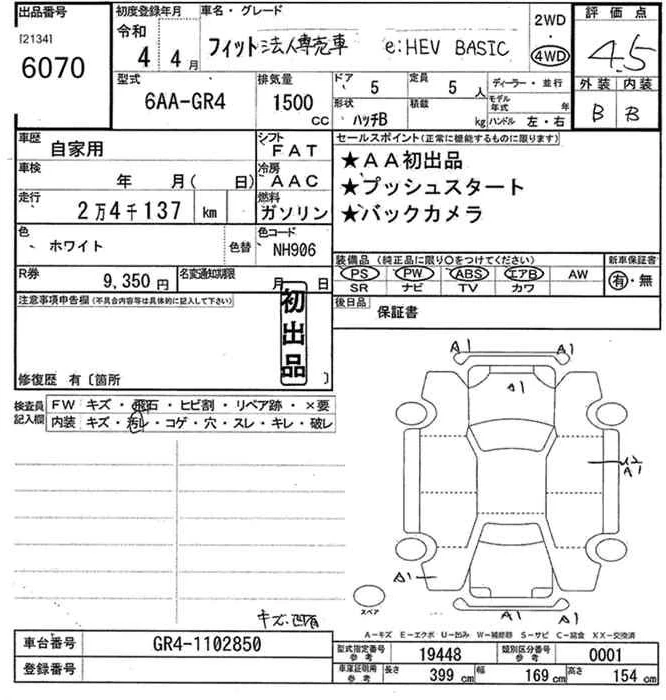 出品番号
[2134]
6070
初度登録年月
令和
4年 4月
車名・グレード
フィット 法人専売車 e:HEV BASIC
2WD
・
4WD
評価点
4.5
外装 内装
B B
型式
6AA-GR4
排気量
1500
CC
ドア 5
定員 5人
ディーラー・並行
形状 ハッチB
積載 kg
モデル年式 年
ハンドル 左・右
車歴 自家用
シフト FAT
車検 年 月( 日)
冷房 AAC
走行 2万4千137 km
燃料 ガソリン
色 ホワイト 色替
色コード NH906
R券 9,350円
名変通知期限 月 日
セールスポイント(正常に機能するものに限ります)
★AA初出品
★プッシュスタート
★バックカメラ
装備品 (純正品に限り○をつけてください)
PS PW ABS エアB AW
SR ナビ TV カワ
新車保証書
有・無
後日品
保証書
注意事項申告欄(不具合内容等は具体的に記入して下さい)
初出品
修復歴 有〔箇所 〕
検査員記入欄
FW キズ・飛石・ヒビ割・リペア跡・×要
内装 キズ・汚レ・コゲ・穴・スレ・キレ・破レ
A1 A1
A1
A1
A1
A1 A1
スペア
キズ・凹有
A-キズ E-エクボ U-凹み W-補修跡 S-サビ C-腐食 XX-交換済
車台番号 GR4-1102850
登録番号
型式指定番号 参考 19448
類別区分番号 参考 0001
車庫証明用 参考 長さ 399cm 幅 169cm 高さ 154cm